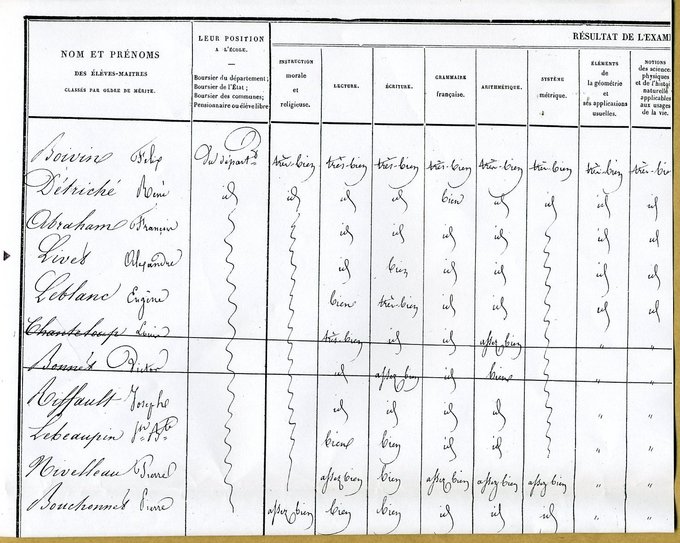 NOM ET PRÉNOMS
DES ÉLÈVES-MAITRES
CLASSÉS PAR ORDRE DE MÉRITE.
LEUR POSITION
A L'ÉCOLE.
Boursier du département;
Boursier de l'État;
Boursier des communes;
Pensionnaire ou élève libre
RÉSULTAT DE L'EXAME
INSTRUCTION
morale
et
religieuse.
LECTURE.
ÉCRITURE.
GRAMMAIRE
française.
ARITHMÉTIQUE.
SYSTÈME
métrique.
ÉLÉMENTS
de
la géométrie
et
ses applications
usuelles.
NOTIONS
des sciences
physiques
et de l'histoi
naturelle
applicables
aux usages
de la vie.
Boivin Félix Du départt très-bien très-bien très-bien très-bien très-bien très-bien très-bien très-bie
Détriché René id id id id bien id id id id
Abraham François id id id id id id
Livés Alexandre id bien id id id id
Leblanc Eugène bien très-bien id id id id
Chanteloup Louis très-bien id id assez bien " "
Bonnés Victor id assez bien id bien " "
Riffault Joseph id id id id " "
Lebeaupin bien bien id id " "
Nivelleau Pierre assez bien bien assez bien assez bien assez bien " "
Bouchonnet Pierre assez bien bien bien id id id " "